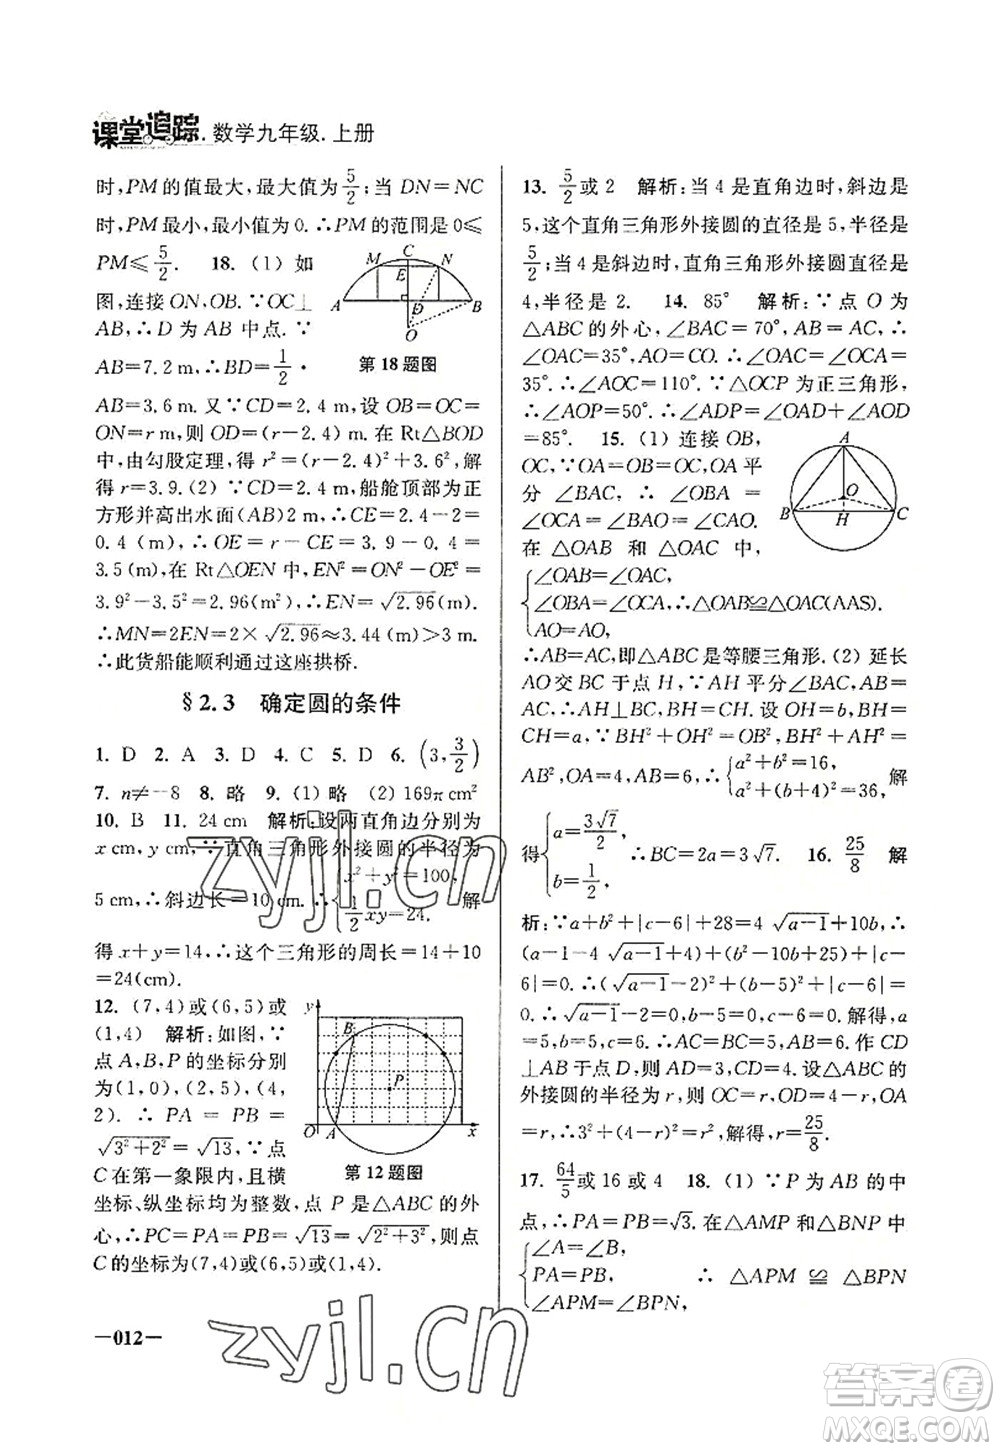 课堂追踪. 数学九年级. 上册
时,PM的值最大,最大值为5/2;当DN=NC
时,PM最小,最小值为0.∴PM的范围是0≤
PM≤5/2. 18.(1)如
图,连接ON,OB.∵OC⊥
AB,∴D为AB中点.∵
AB=7.2m,∴BD=1/2·
M C N E A D B O
第18题图
AB=3.6m.又∵CD=2.4m,设OB=OC=
ON=r m,则OD=(r-2.4)m.在Rt△BOD
中,由勾股定理,得r²=(r-2.4)²+3.6²,解
得r=3.9.(2)∵CD=2.4m,船舱顶部为正
方形并高出水面(AB)2m,∴CE=2.4-2=
0.4(m),∴OE=r-CE=3.9-0.4=
3.5(m),在Rt△OEN中,EN²=ON²-OE²=
3.9²-3.5²=2.96(m²),∴EN=√2.96(m).
∴MN=2EN=2×√2.96≈3.44(m)>3m.
∴此货船能顺利通过这座拱桥.
§2.3 确定圆的条件
1. D 2. A 3. D 4. C 5. D 6. (3,3/2)
7. n≠-8 8. 略 9. (1)略 (2)169π cm²
10. B 11. 24cm 解析:设两直角边分别为
x cm,y cm,∵直角三角形外接圆的半径为
5cm,∴斜边长=10cm.∴{x²+y²=100, 1/2xy=24. 解
得x+y=14,∴这个三角形的周长=14+10
=24(cm).
12. (7,4)或(6,5)或
(1,4) 解析:如图,∵
点A,B,P的坐标分别
为(1,0),(2,5),(4,
2).∴PA=PB=
√3²+2²=√13,∵点
C在第一象限内,且横
y B P O A x
第12题图
坐标、纵坐标均为整数,点P是△ABC的外
心,∴PC=PA=PB=√13=√2²+3²,则点
C的坐标为(7,4)或(6,5)或(1,4).
—012—
13. 5/2或2 解析:当4是直角边时,斜边是
5,这个直角三角形外接圆的直径是5,半径是
5/2;当4是斜边时,直角三角形外接圆直径是
4,半径是2. 14. 85° 解析:∵点O为
△ABC的外心,∠BAC=70°,AB=AC,∴
∠OAC=35°,AO=CO.∴∠OAC=∠OCA=
35°,∴∠AOC=110°.∵△OCP为正三角形,
∴∠AOP=50°.∴∠ADP=∠OAD+∠AOD
=85°. 15. (1)连接OB,
OC,∵OA=OB=OC,OA平
分∠BAC,∴∠OBA=
∠OCA=∠BAO=∠CAO.
在△OAB和△OAC中,
A O B H C
{∠OAB=∠OAC,
∠OBA=∠OCA,∴△OAB≌△OAC(AAS).
AO=AO,
∴AB=AC,即△ABC是等腰三角形.(2)延长
AO交BC于点H,∵AH平分∠BAC,AB=
AC,∴AH⊥BC,BH=CH.设OH=b,BH=
CH=a,∵BH²+OH²=OB²,BH²+AH²=
AB²,OA=4,AB=6,∴{a²+b²=16, a²+(b+4)²=36. 解
得{a=3√7/2, b=1/2. ∴BC=2a=3√7. 16. 25/8 解
析:∵a+b²+|c-6|+28=4√a-1+10b,∴
(a-1-4√a-1+4)+(b²-10b+25)+|c-6|
=0.∴(√a-1-2)²+(b-5)²+|c-6|=
0.∴√a-1-2=0,b-5=0,c-6=0.解得,a
=5,b=5,c=6.∴AC=BC=5,AB=6.作CD
⊥AB于点D,∴AD=3,CD=4.设△ABC的
外接圆的半径为r,则OC=r,OD=4-r,OA
=r,∴3²+(4-r)²=r²,解得,r=25/8.
17. 64/5或16或4 18. (1)∵P为AB的中
点,∴PA=PB=√3.在△AMP和△BNP中
{∠A=∠B,
PA=PB, ∴△APM≌△BPN,
∠APM=∠BPN,
zyjl.cn
zyjl.cn
答案圈
MXQE.COM